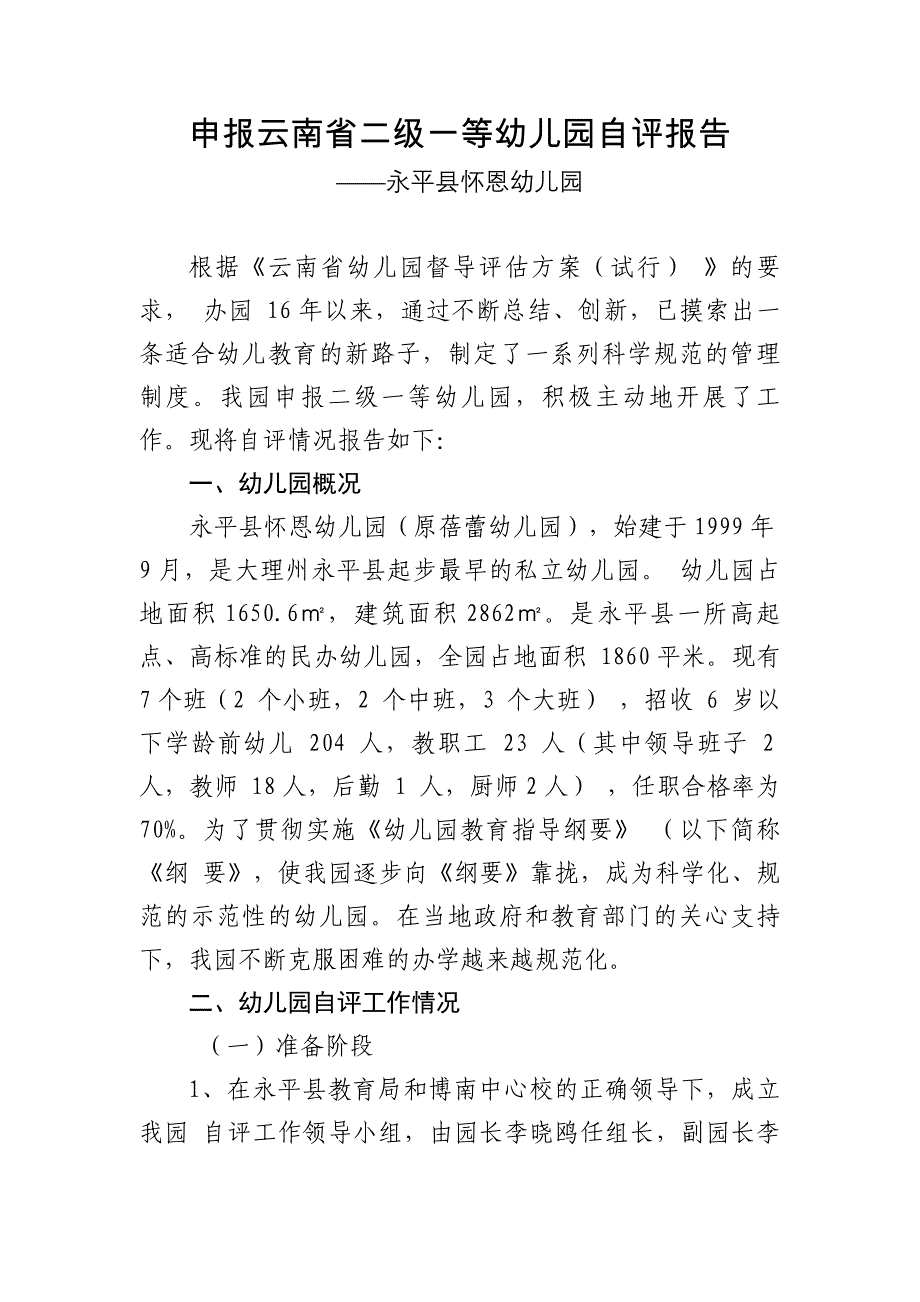 申报云南省二级一等幼儿园自评报告
——永平县怀恩幼儿园
根据《云南省幼儿园督导评估方案（试行） 》的要
求， 办园 16年以来，通过不断总结、创新，已摸索出一
条适合幼儿教育的新路子，制定了一系列科学规范的管理
制度。我园申报二级一等幼儿园，积极主动地开展了工
作。现将自评情况报告如下：
一、幼儿园概况
永平县怀恩幼儿园（原蓓蕾幼儿园），始建于1999年
9月，是大理州永平县起步最早的私立幼儿园。 幼儿园占
地面积1650.6㎡，建筑面积2862㎡。是永平县一所高起
点、高标准的民办幼儿园，全园占地面积 1860平米。现有
7个班（2 个小班，2 个中班，3 个大班） ，招收 6 岁以
下学龄前幼儿 204 人，教职工 23 人（其中领导班子 2
人，教师 18人，后勤 1 人，厨师2人） ，任职合格率为
70%。为了贯彻实施《幼儿园教育指导纲要》 （以下简称
《纲 要》，使我园逐步向《纲要》靠拢，成为科学化、规
范的示范性的幼儿园。在当地政府和教育部门的关心支持
下，我园不断克服困难的办学越来越规范化。
二、幼儿园自评工作情况
（一）准备阶段
1、在永平县教育局和博南中心校的正确领导下，成立
我园 自评工作领导小组，由园长李晓鸥任组长，副园长李